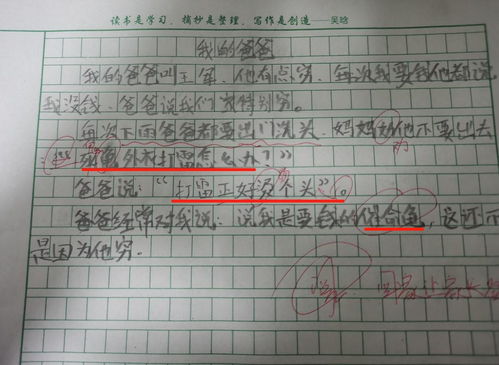 读书是学习，摘抄是整理，写作是创造——吴晗
我的爸爸
我的爸爸叫王军，他有点穷，每次我要钱他都说
我没钱，爸爸说我们家特别穷。
每次下雨爸爸都要出门洗头，妈妈劝他不要出去
外打雷怎么办？”
爸爸说：“打雷正好烫个头”。
爸爸经常对我说：说我是要钱的，这还不
是因为他穷。